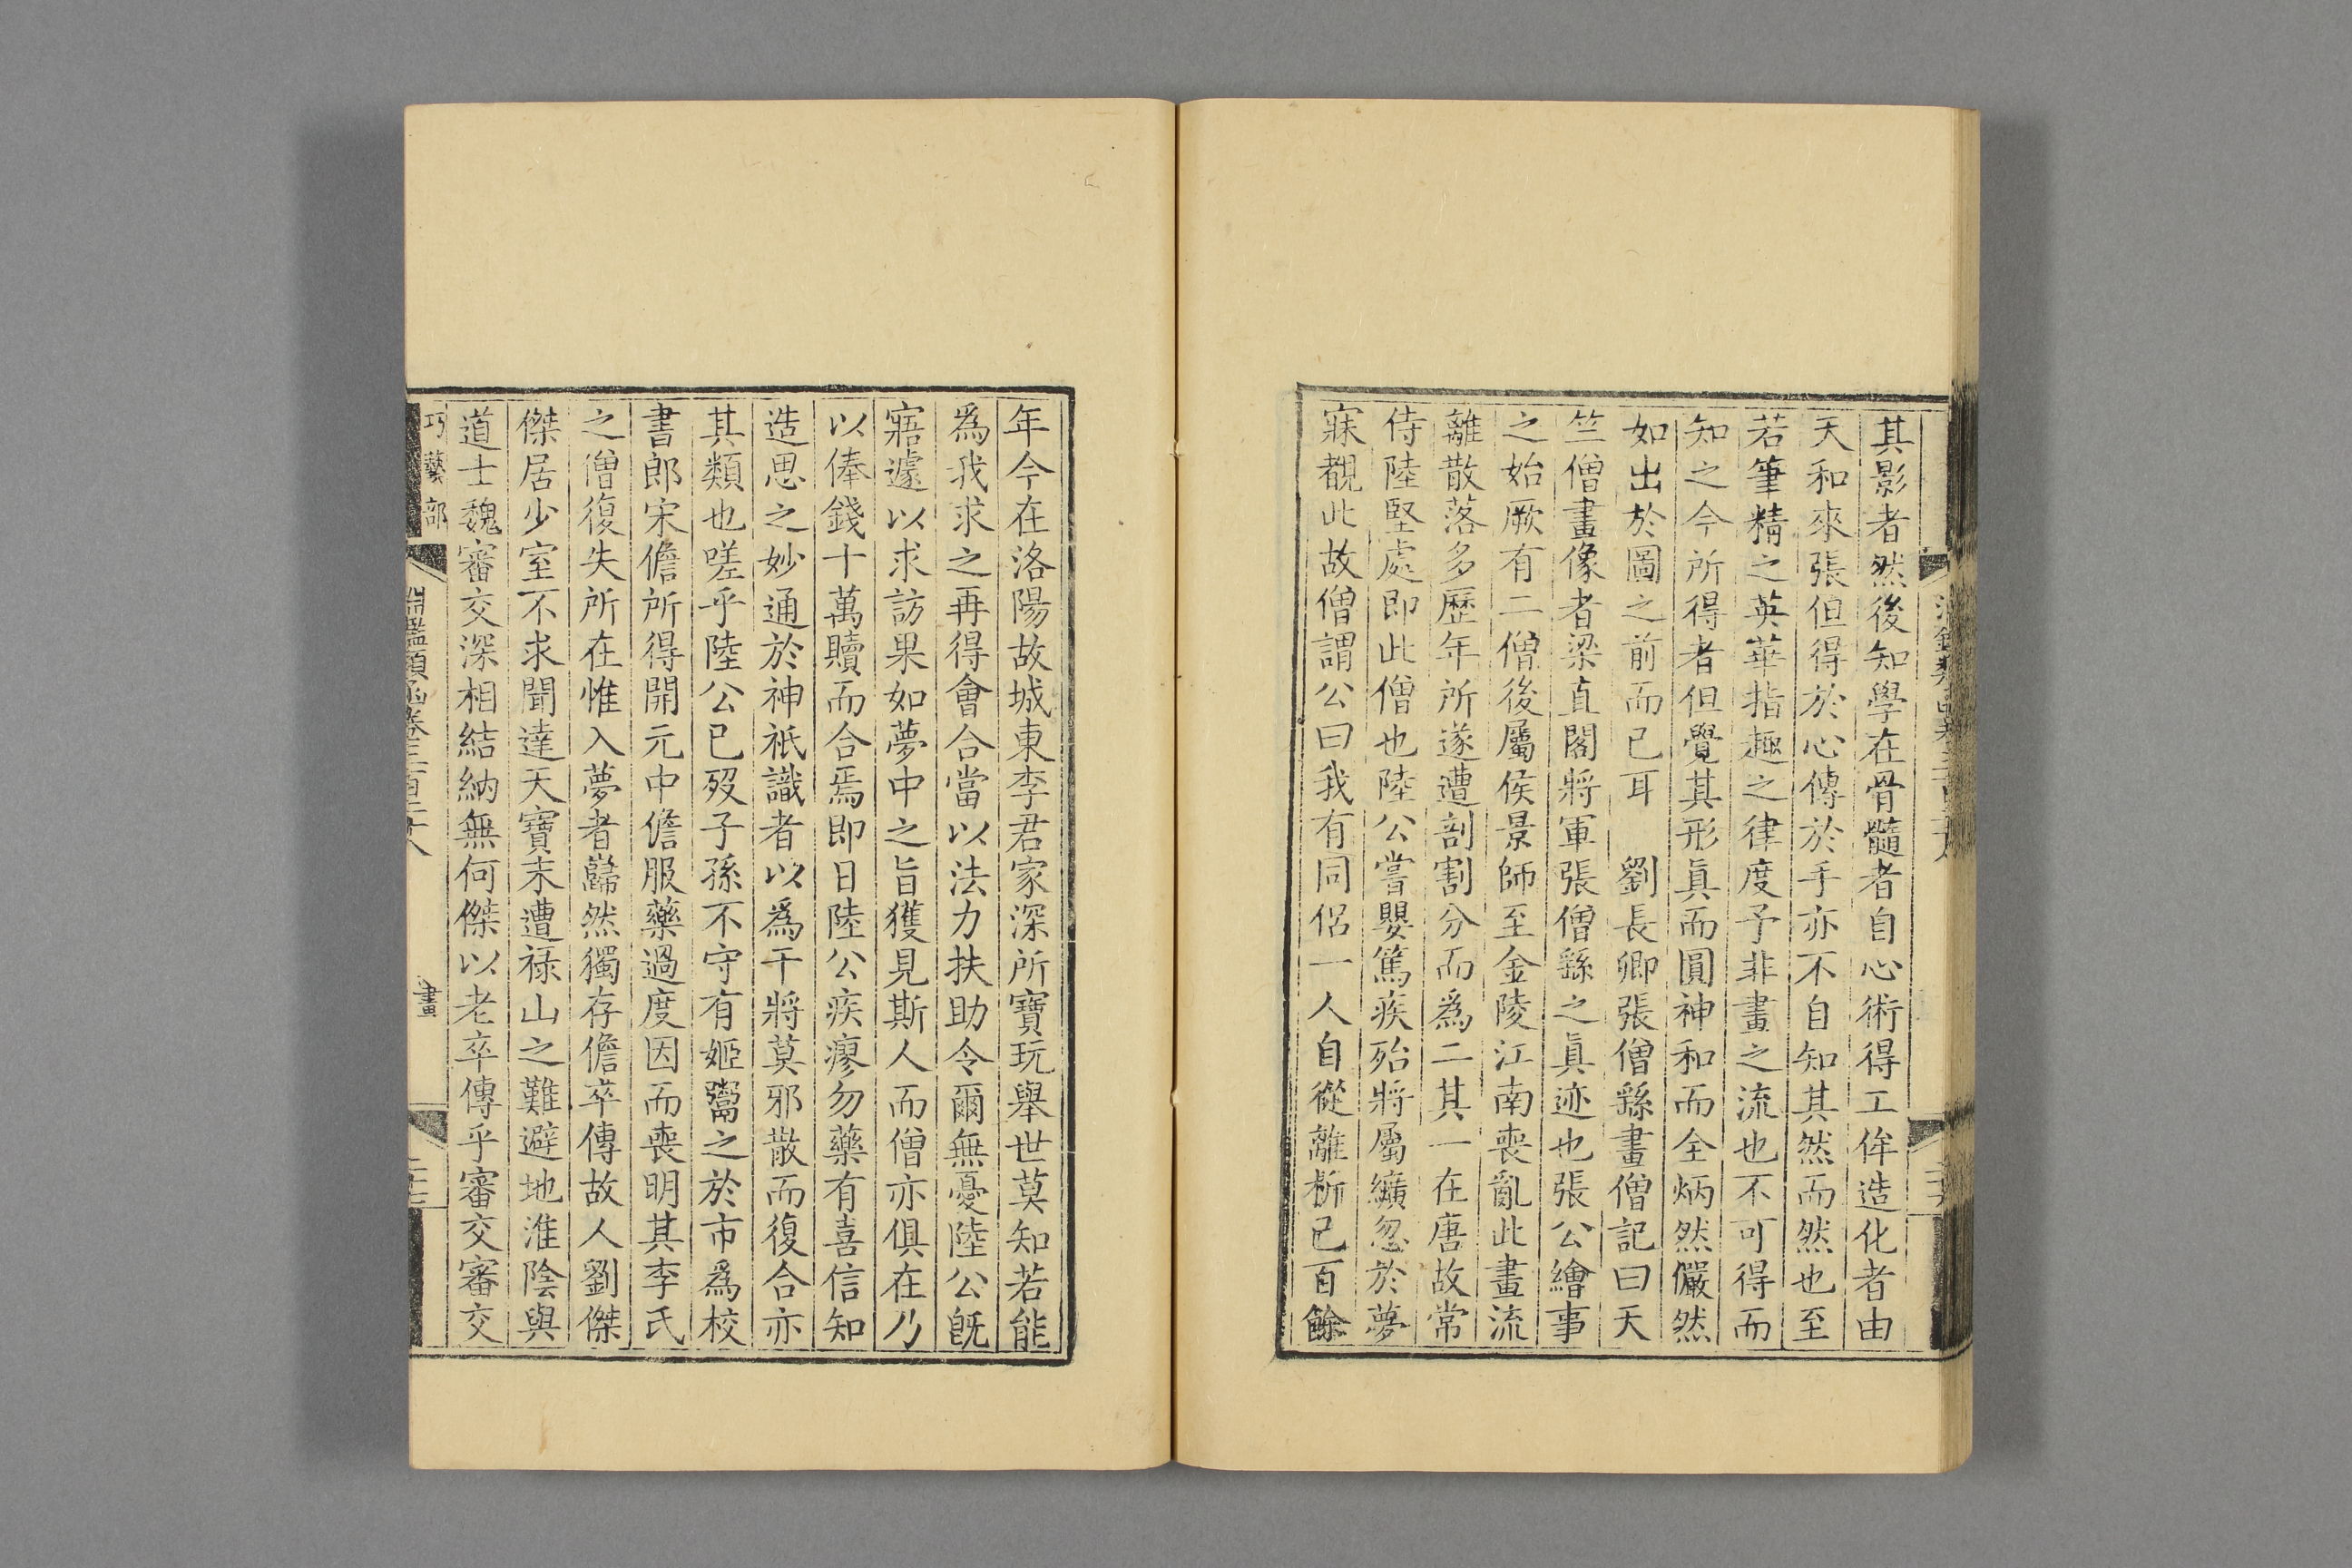 其影者然後知學在骨髓者自心術得工侔造化者由
天和來張但得於心傳於手亦不自知其然而然也至
若筆精之英華指趣之律度予非畫之流也不可得而
知之今所得者但覺其形眞而圓神和而全炳然儼然
如出於圖之前而已耳　劉長卿張僧繇畫僧記曰天
竺僧畫像者梁直閣將軍張僧繇之眞迹也張公繪事
之始厥有二僧後屬侯景師至金陵江南喪亂此畫流
離散落多歷年所遂遭剖割分而爲二其一在唐故常
侍陸堅處即此僧也陸公嘗嬰篤疾殆將屬纊忽於夢
寐覩此故僧謂公曰我有同侶一人自從離析已百餘
年今在洛陽故城東李君家深所寶玩舉世莫知若能
爲我求之再得會合當以法力扶助令爾無憂陸公旣
寤遽以求訪果如夢中之旨獲見斯人而僧亦俱在乃
以俸錢十萬贖而合焉即日陸公疾瘳勿藥有喜信知
造思之妙通於神祇識者以爲干將莫邪散而復合亦
其類也嗟乎陸公已歿子孫不守有姬鬻之於市爲校
書郎宋儋所得開元中儋服藥過度因而喪明其李氏
之僧復失所在惟入夢者巋然獨存儋卒傳故人劉傑
傑居少室不求聞達天寶末遭祿山之難避地淮陰與
道士魏審交深相結納無何傑以老卒傳乎審交審交
巧藝部　淵鑑類函卷三百二十八　畫　二十七